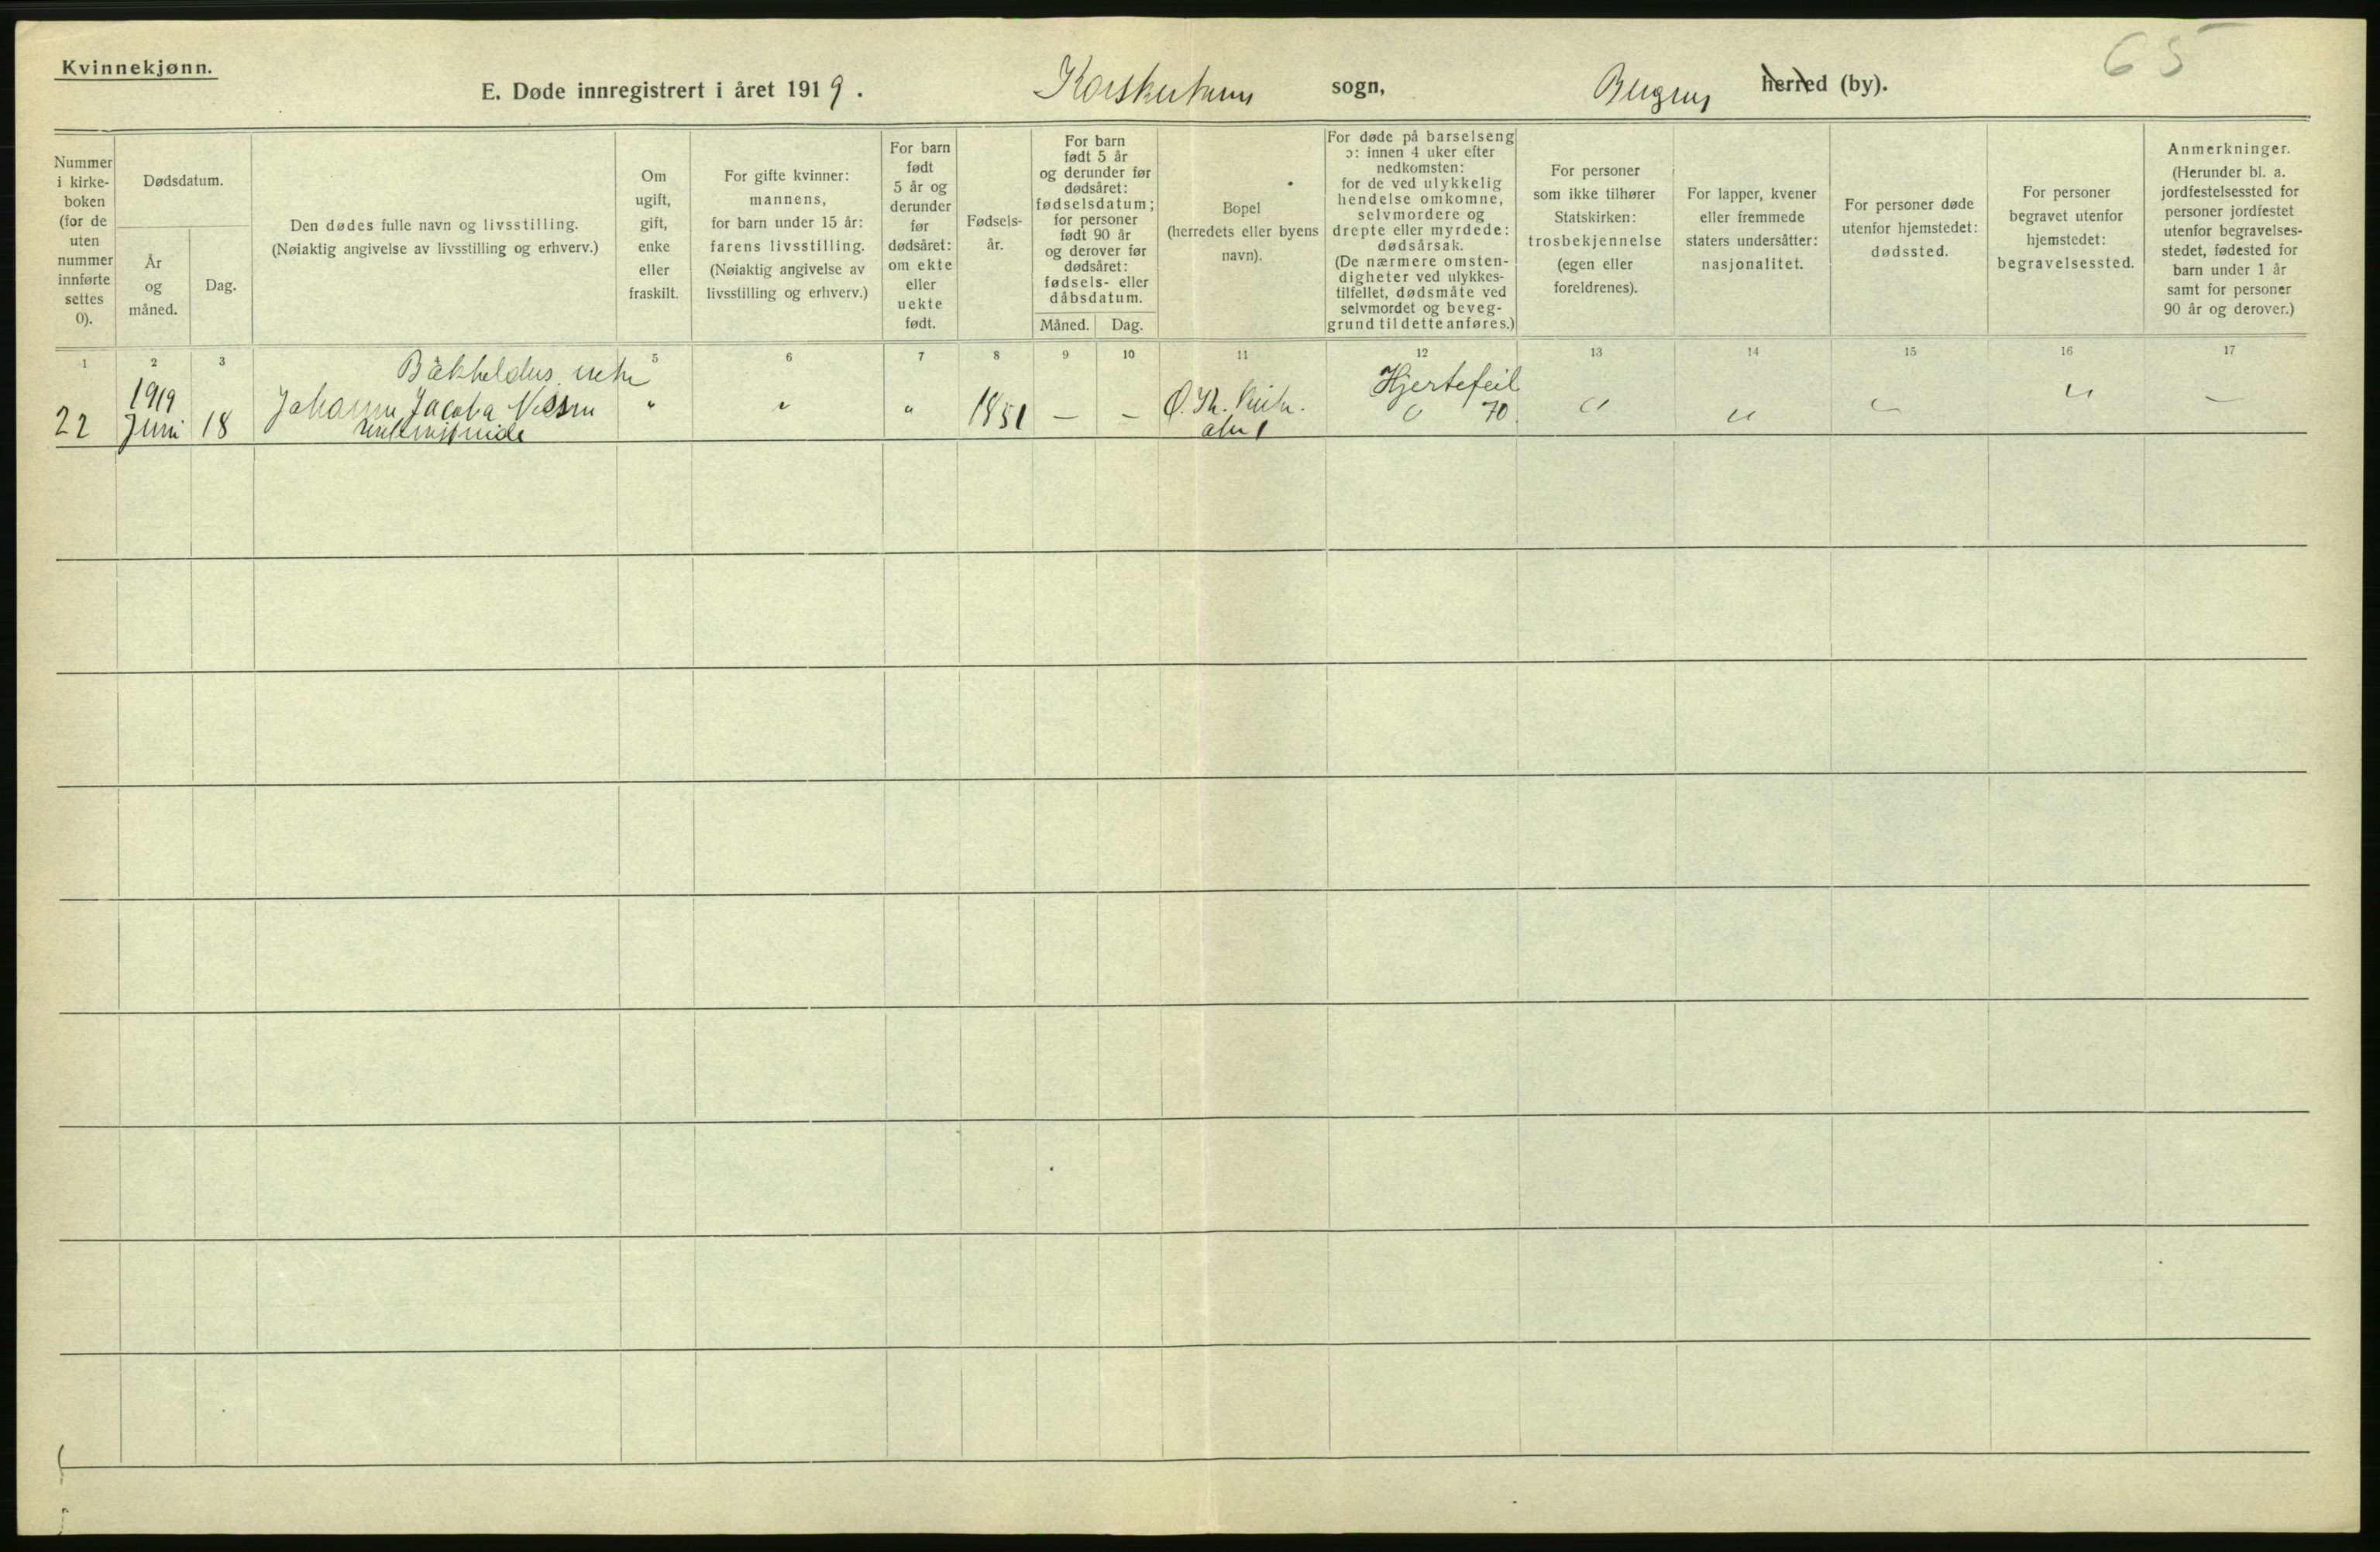 Kvinnekjønn.
65
E. Døde innregistrert i året 1919. Korskirkens sogn, Bergens herred (by).
Nummer
i kirke-
boken
(for de
uten
nummer
innførte
settes
0).
Dødsdatum.
År
og
måned.
Dag.
Den dødes fulle navn og livsstilling.
(Nøiaktig angivelse av livsstilling og erhverv.)
Om
ugift,
gift,
enke
eller
fraskilt.
For gifte kvinner:
mannens,
for barn under 15 år:
farens livsstilling.
(Nøiaktig angivelse av
livsstilling og erhverv.)
For barn
født
5 år og
derunder
før
dødsåret:
om ekte
eller
uekte
født.
Fødsels-
år.
For barn
født 5 år
og derunder før
dødsåret:
fødselsdatum;
for personer
født 90 år
og derover før
dødsåret:
fødsels- eller
dåbsdatum.
Måned. Dag.
Bopel
(herredets eller byens
navn).
For døde på barselseng
ɔ: innen 4 uker efter
nedkomsten:
for de ved ulykkelig
hendelse omkomne,
selvmordere og
drepte eller myrdede:
dødsårsak.
(De nærmere omsten-
digheter ved ulykkes-
tilfellet, dødsmåte ved
selvmordet og beveg-
grund til dette anføres.)
For personer
som ikke tilhører
Statskirken:
trosbekjennelse
(egen eller
foreldrenes).
For lapper, kvener
eller fremmede
staters undersåtter:
nasjonalitet.
For personer døde
utenfor hjemstedet:
dødssted.
For personer
begravet utenfor
hjemstedet:
begravelsessted.
Anmerkninger.
(Herunder bl. a.
jordfestelsessted for
personer jordfestet
utenfor begravelses-
stedet, fødested for
barn under 1 år
samt for personer
90 år og derover.)
1 2 3 5 6 7 8 9 10 11 12 13 14 15 16 17
1919 Hjertefeil
22 Juni 18 Johanne Jacoba " " " 1851 – – " 70. " " " " –